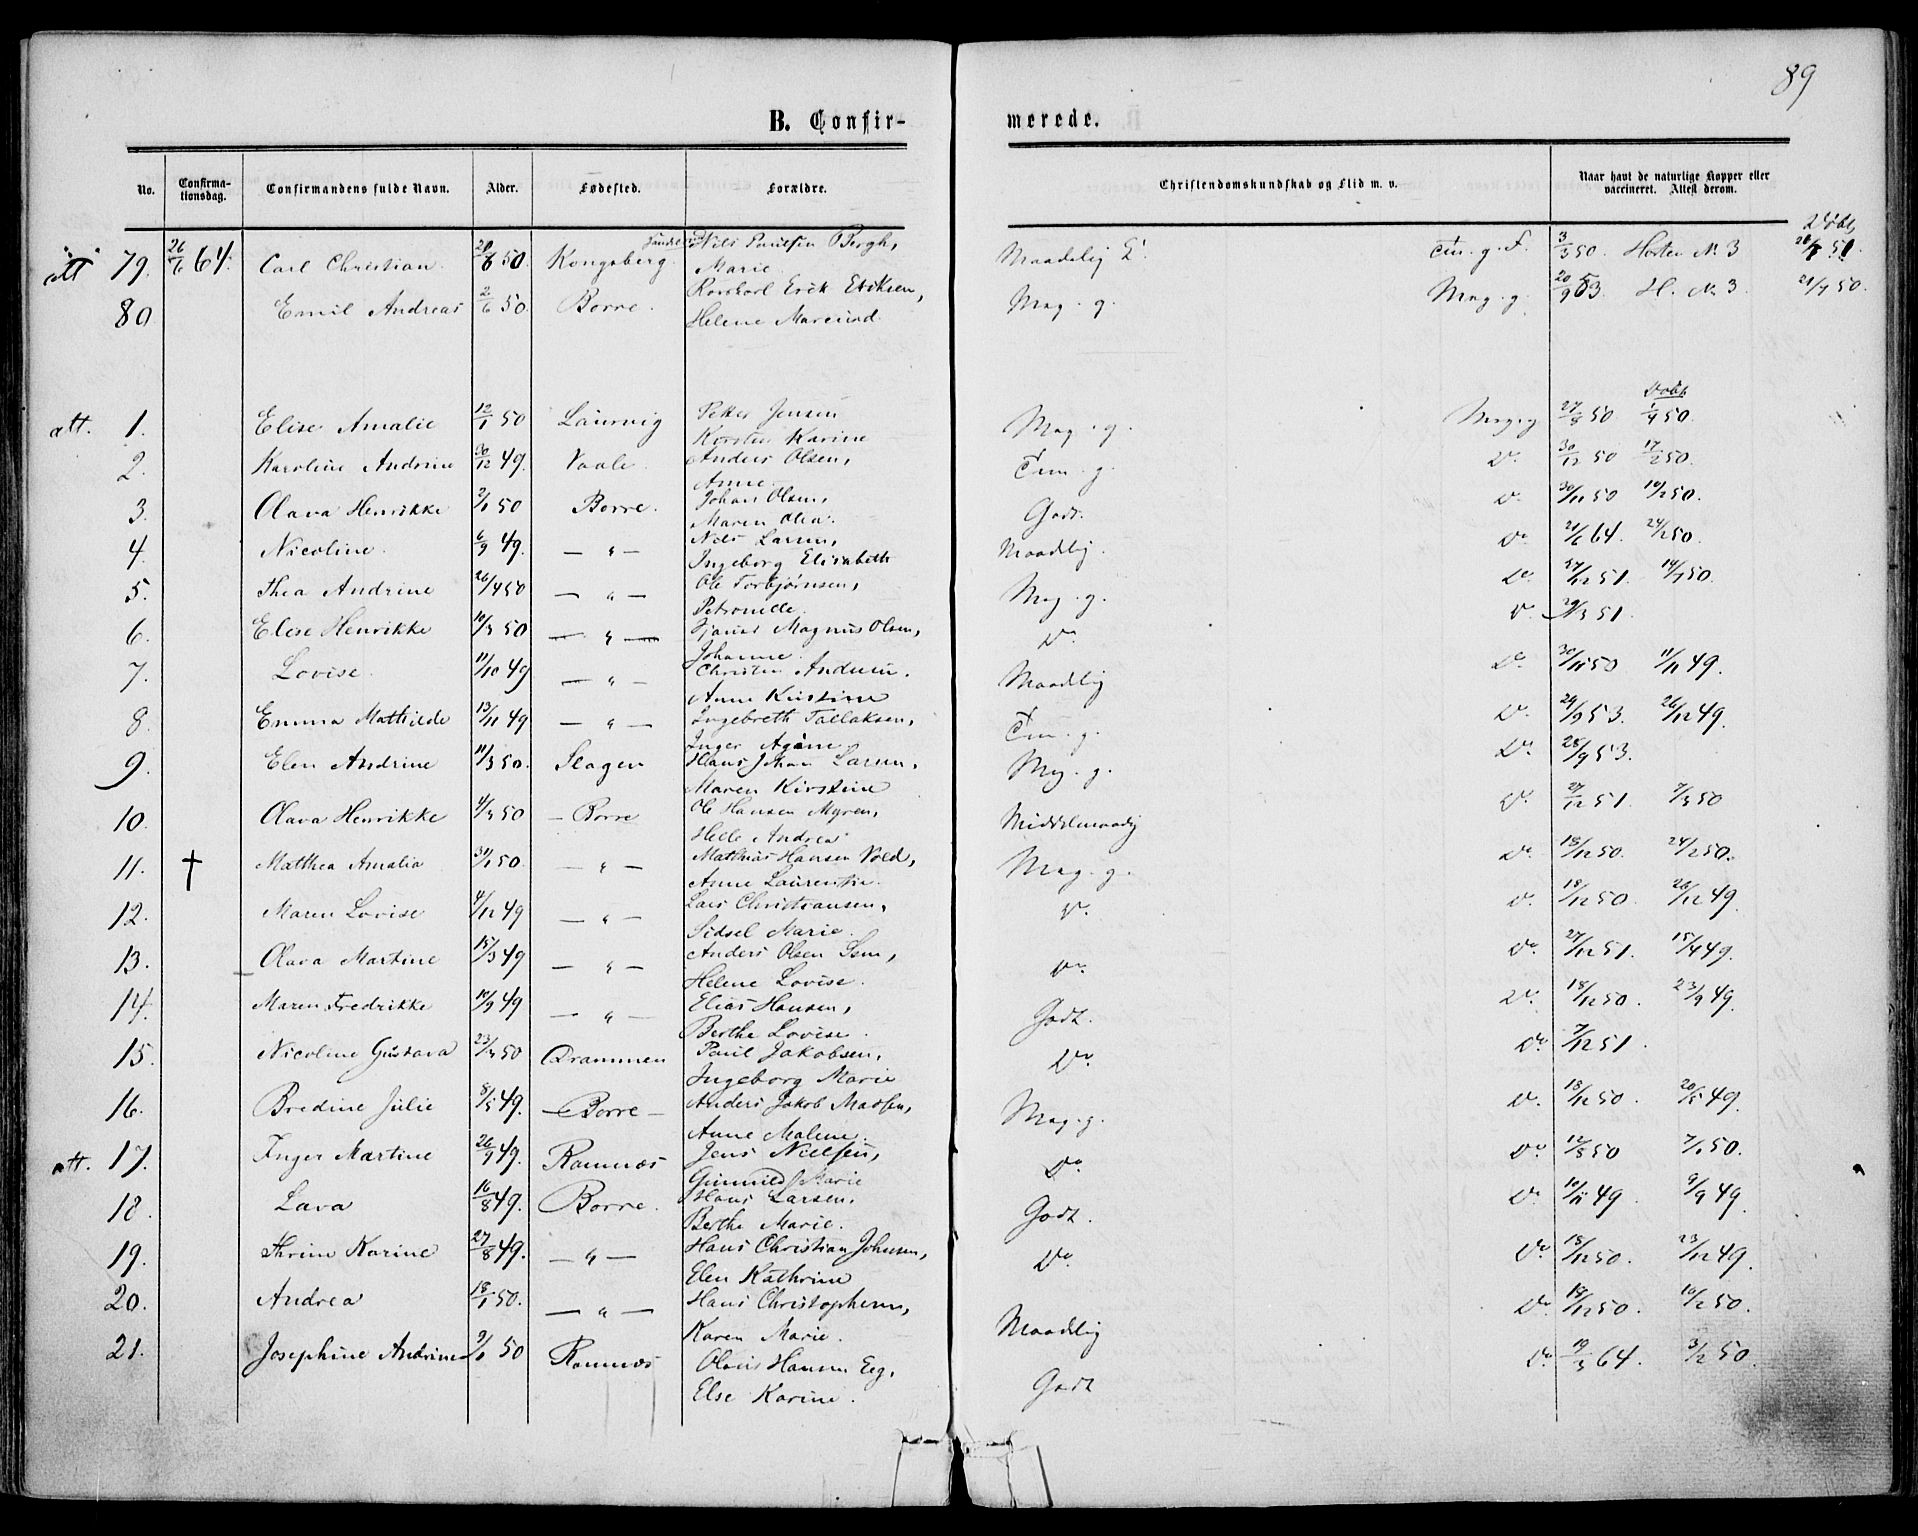 89
B. Confir- merede.
No. Confirma-tionsdag. Confirmandens fulde Navn. Alder. Fødested. Forældre. Christendomskundskab og Flid m. v. Naar havt de naturlige Kopper eller vaccineret. Attest derom.
Døbt
att 79. 26/6 64. Carl Christian 50. Kongsberg. Nils Paulsen Bergh, Maadelig Tm. g. F. 3/3 50. Horten N. 3
Marie
80. Emil Andreas 2/6 50 Borre. Erik Eriksen, Mag. g. Mag. g. 20/9 53. H. N. 3 21/7 50.
Helene
Døbt
att. 1. Elise Amalie 12/1 50 Laurvig Petter Jensen Mag. g. Meg. g 27/8 50 1/4 50.
Karine
2. Karoline Andrine 30/12 49. Vaale. Anders Olsen, Tm. g. D. 30/12 50 17/2 50.
Anne.
3. Olava Henrikke 2/1 50 Borre. Johan Olsen, Godt. D. 30/11 50 10/2 50.
Maren Olea.
4. Nicoline. 6/9 49. — " — Nils Larsen, Maadelig. Do 21/6 64. 24/2 50.
Ingeborg Elisabeth
5. Thea Andrine 26/4 50 — " — Ole Torbjørnsen, Meg. g. Do. 27/12 51. 14/7 50.
Petronille.
6. Elise Henrikke 10/3 50 — " — Magnus Olsen, Do D. 29/3 51.
Johanne.
7. Lovise. 11/10 49 — " — Christen Andersen. Maadelig Do 30/11 50 11/11 49.
Anne Kirstine
8. Emma Mathilde 13/11 49 — " — Ingebreth Tallaksen, Tm. g. D. 29/9 53. 26/12 49.
Inger
9. Elen Andrine 11/3 50. Slagen Hans Johan Larsen, Meg. g. Do. 28/9 53.
Maren Kirstine
10. Olava Henrikke 4/3 50 — Borre Ole Hansen Myren, Middelmaadig D. 27/12 51. 7/3 50
Helle Andrea
11. † Matthea Amalia 31/1 50. — " — Mathias Hansen Vold, Mag. g. Do 18/12 50. 24/2 50.
Anne Laurentin.
12. Maren Lovise 4/12 49 — " — Lars Christiansen, D. D. 18/12 50. 26/12 49.
Sidsel Marie.
13. Olava Martine 15/3 49 — " — Anders Olsen Sem, Do. Do 27/12 51. 15/4 49.
Helene Lovise.
14. Maren Fredrikke 10/9 49 — " — Elias Hansen, Godt. Do. 18/12 50. 23/9 49.
Berthe Lovise.
15. Nicoline Gustava 23/3 50 Drammen Paul Jakobsen, Do Do 7/12 51.
Ingeborg Marie
16. Bredine Julie 8/5 49. — Borre — Anders Jakob Madsen, Mag. g. D. 18/12 50. 20/5 49.
Anne Malene.
att. 17. Inger Martine 26/9 49. Ramnæs Jens Nielsen, Do Do 12/8 50 7/1 50.
Gunnild Marie
18. Lava 16/8 49. Borre. Hans Larsen, Godt. D. 10/11 49 9/9 49.
Berthe Marie.
19. Thrine Karine 27/8 49. — " — Hans Christian Johnsen, Do. Do 18/12 50. 23/12 49.
Elen Kathrine
20. Andrea 18/1 50. — " — Hans Christophersen, Maadelig Do 18/12 50. 10/2 50.
Karen Marie.
21. Josephine Andrine 9/1 50 Ramnæs Olaus Hansen Eeg, Godt Do 19/3 64. 3/2 50.
Else Karine.